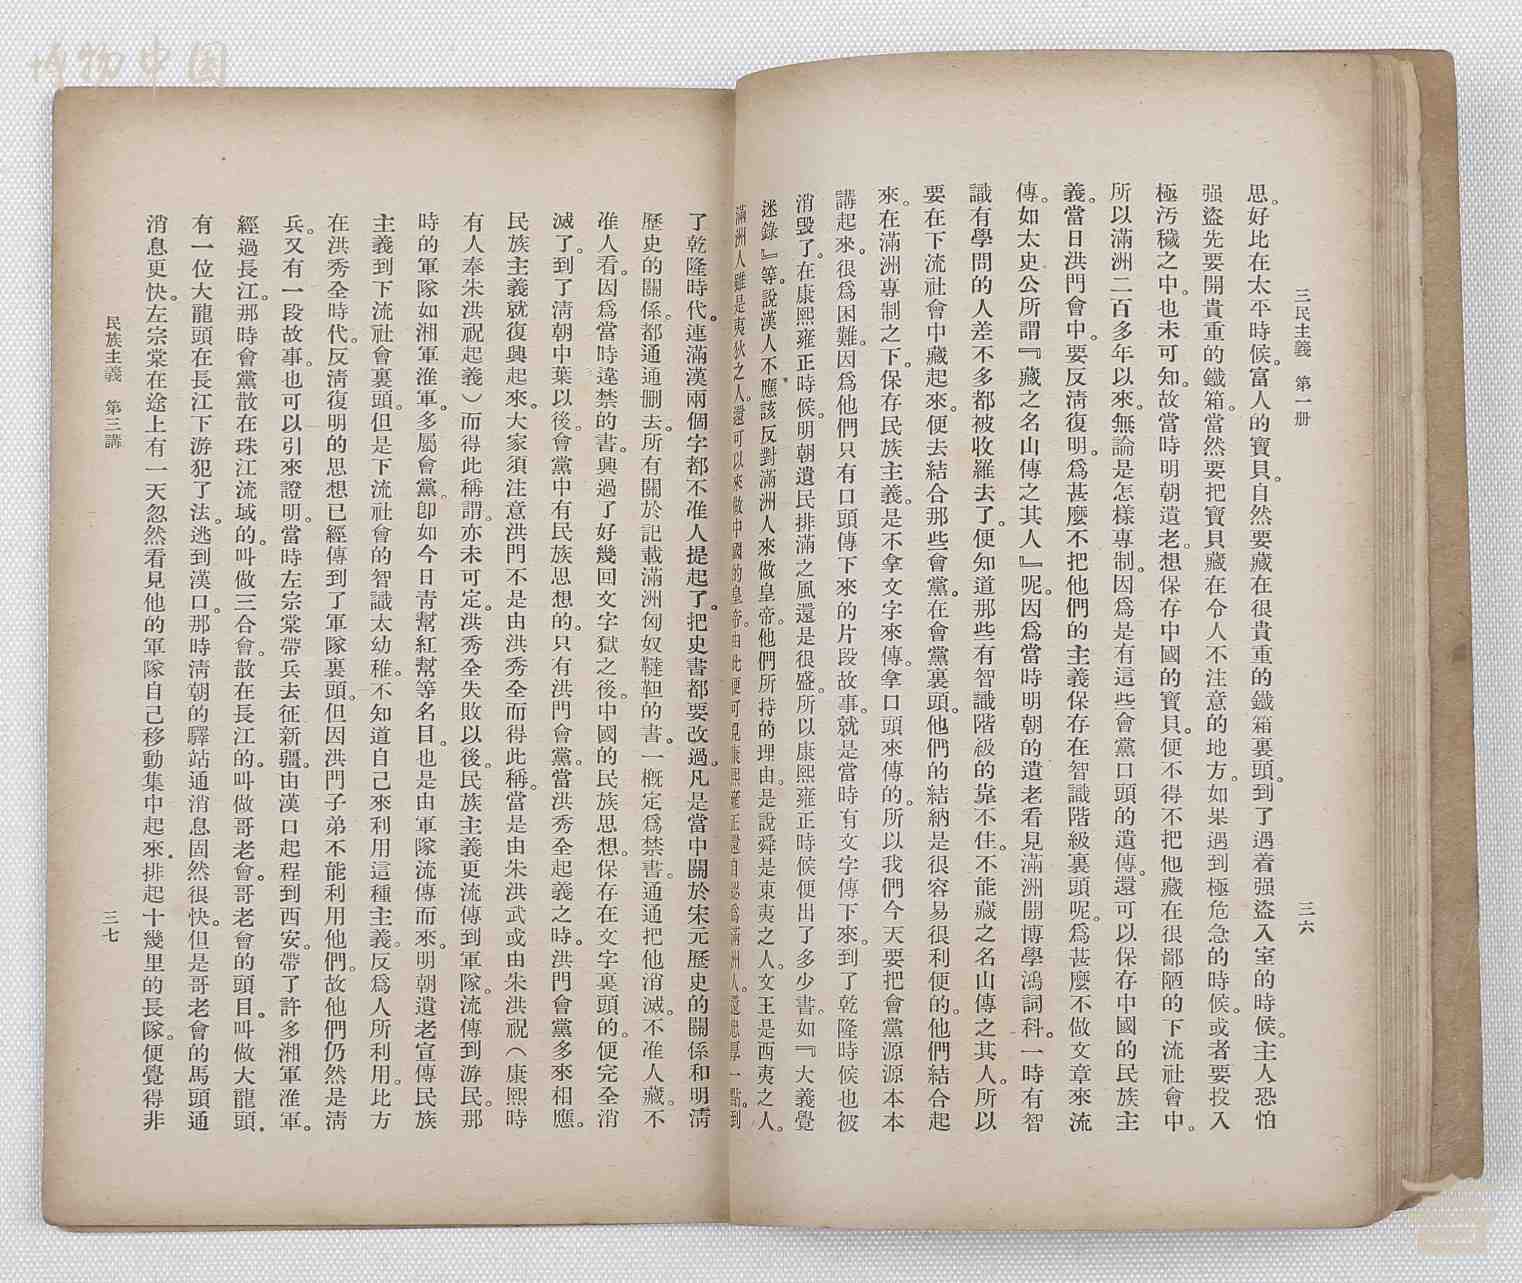 博物中国
三民主義 第一册
三六
思。好比在太平時候。富人的寶貝。自然要藏在很貴重的鐵箱裏頭。到了遇着强盜入室的時候。主人恐怕
强盜先要開貴重的鐵箱。當然要把寶貝藏在令人不注意的地方。如果遇到極危急的時候。或者要投入
極汚穢之中。也未可知。故當時明朝遺老。想保存中國的寶貝。便不得不把他藏在很鄙陋的下流社會中。
所以滿洲二百多年以來。無論是怎樣專制。因爲是有這些會黨口頭的遺傳。還可以保存中國的民族主
義。當日洪門會中。要反淸復明。爲甚麼不把他們的主義保存在智識階級裏頭呢。爲甚麼不做文章來流
傳。如太史公所謂『藏之名山傳之其人』呢。因爲當時明朝的遺老看見滿洲開博學鴻詞科。一時有智
識有學問的人差不多都被收羅去了。便知道那些有智識階級的靠不住。不能藏之名山傳之其人。所以
要在下流社會中藏起來。便去結合那些會黨。在會黨裏頭。他們的結納是很容易很利便的。他們結合起
來。在滿洲專制之下。保存民族主義。是不拿文字來傳。拿口頭來傳的。所以我們今天要把會黨源源本本
講起來。很爲困難。因爲他們只有口頭傳下來的片段故事。就是當時有文字傳下來。到了乾隆時候也被
消毀了。在康熙雍正時候。明朝遺民排滿之風還是很盛。所以康熙雍正時候便出了多少書。如『大義覺
迷錄』等。說漢人不應該反對滿洲人來做皇帝。他們所持的理由。是說舜是東夷之人。文王是西夷之人。
滿洲人雖是夷狄之人。還可以來做中國的皇帝。由此便可見康熙雍正還自認爲滿洲人。還忠厚一點。到
了乾隆時代。連滿漢兩個字都不准人提起了。把史書都要改過。凡是當中關於宋元歷史的關係和明淸
歷史的關係。都通通刪去。所有關於記載滿洲匈奴韃靼的書。一概定爲禁書。通通把他消滅。不准人藏。不
准人看。因爲當時違禁的書。興過了好幾回文字獄之後。中國的民族思想。保存在文字裏頭的。便完全消
滅了。到了淸朝中葉以後。會黨中有民族思想的。只有洪門會黨。當洪秀全起義之時。洪門會黨多來相應。
民族主義就復興起來。大家須注意洪門不是由洪秀全而得此稱。當是由朱洪武或由朱洪祝（康熙時
有人奉朱洪祝起義）而得此稱謂。亦未可定。洪秀全失敗以後。民族主義更流傳到軍隊。流傳到游民。那
時的軍隊如湘軍淮軍。多屬會黨。卽如今日靑幫紅幫等名目。也是由軍隊流傳而來。明朝遺老宣傳民族
主義到下流社會裏頭。但是下流社會的智識太幼稚。不知道自己來利用這種主義。反爲人所利用。比方
在洪秀全時代。反淸復明的思想已經傳到了軍隊裏頭。但因洪門子弟不能利用他們。故他們仍然是淸
兵。又有一段故事。也可以引來證明。當時左宗棠帶兵去征新疆。由漢口起程到西安。帶了許多湘軍淮軍。
經過長江。那時會黨散在珠江流域的。叫做三合會。散在長江的。叫做哥老會。哥老會的頭目。叫做大龍頭。
有一位大龍頭在長江下游犯了法。逃到漢口。那時淸朝的驛站通消息固然很快。但是哥老會的馬頭通
消息更快。左宗棠在途上有一天忽然看見他的軍隊自己移動集中起來。排起十幾里的長隊。便覺得非
民族主義 第三講
三七